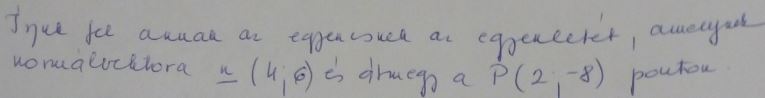 Írjuk fel annak az egyenesnek az egyenletét, amelynek
normálvektora n (4; 6) és átmegy a P(2; -8) ponton.